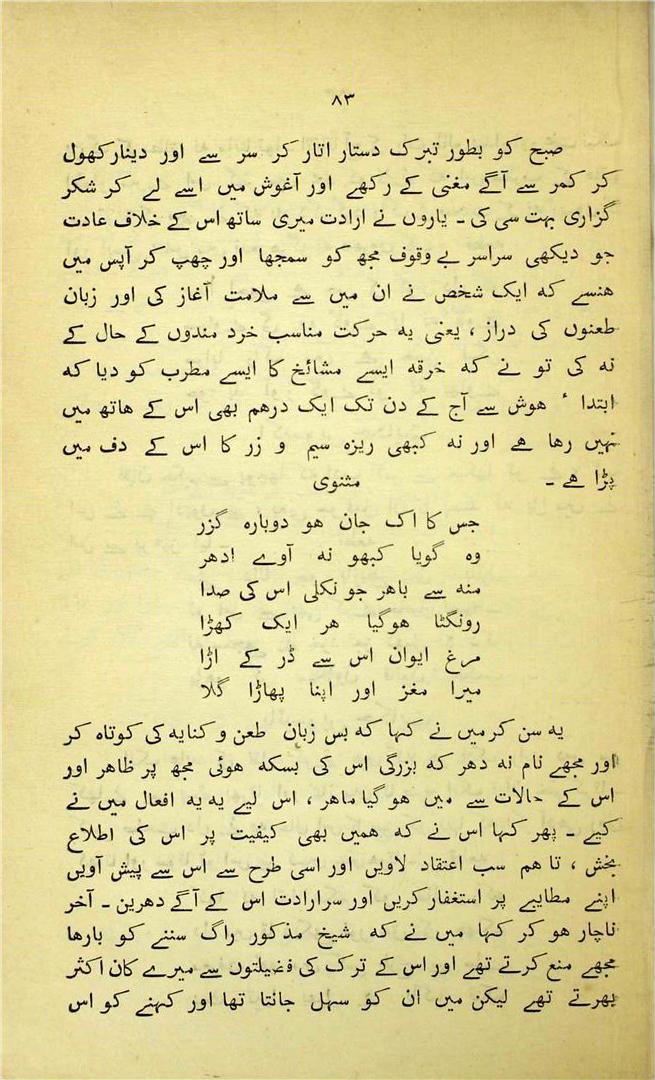 ۸۳
صبح کو بطور تبرک دستار اتار کر سر سے اور دینار کھول
کر کمر سے آگے مغنی کے رکھے اور آغوش میں اسے لے کر شکر
گزاری بہت سی کی ۔ یاروں نے ارادت میری ساتھ اس کے خلاف عادت
جو دیکھی سراسر بے وقوف مجھ کو سمجھا اور چھپ کر آپس میں
ھنسے کہ ایک شخص نے ان میں سے ملامت آغاز کی اور زبان
طعنوں کی دراز ، یعنی یہ حرکت مناسب خرد مندوں کے حال کے
نہ کی تو نے کہ خرقہ ایسے مشائخ کا ایسے مطرب کو دیا کہ
ابتدا ٔ ھوش سے آج کے دن تک ایک درھم بھی اس کے ھاتھ میں
نہیں رھا ھے اور نہ کبھی ریزہ سیم و زر کا اس کے دف میں
پڑا ھے ۔ مثنوی
جس کا اک جان ھو دوبارہ گزر
وہ گویا کبھو نہ آوے ادھر
منہ سے باھر جو نکلی اس کی صدا
رونگٹا ھوگیا ھر ایک کھڑا
مرغ ایوان اس سے ڈر کے اڑا
میرا مغز اور اپنا پھاڑا گلا
یہ سن کر میں نے کہا کہ بس زبان طعن و کنایہ کی کوتاہ کر
اور مجھے نام نہ دھر کہ بزرگی اس کی بسکہ ھوئی مجھ پر ظاھر اور
اس کے حالات سے میں ھو گیا ماھر ، اس لیے یہ یہ افعال میں نے
کیے ۔ پھر کہا اس نے کہ ھمیں بھی کیفیت پر اس کی اطلاع
بخش ، تا ھم سب اعتقاد لاویں اور اسی طرح سے اس سے پیش آویں
اپنے مطایبے پر استغفار کریں اور سر ارادت اس کے آگے دھریں ۔ آخر
ناچار ھو کر کہا میں نے کہ شیخ مذکور راگ سننے کو بارھا
مجھے منع کرتے تھے اور اس کے ترک کی فضیلتوں سے میرے کان اکثر
بھرتے تھے لیکن میں ان کو سہل جانتا تھا اور کہنے کو اس